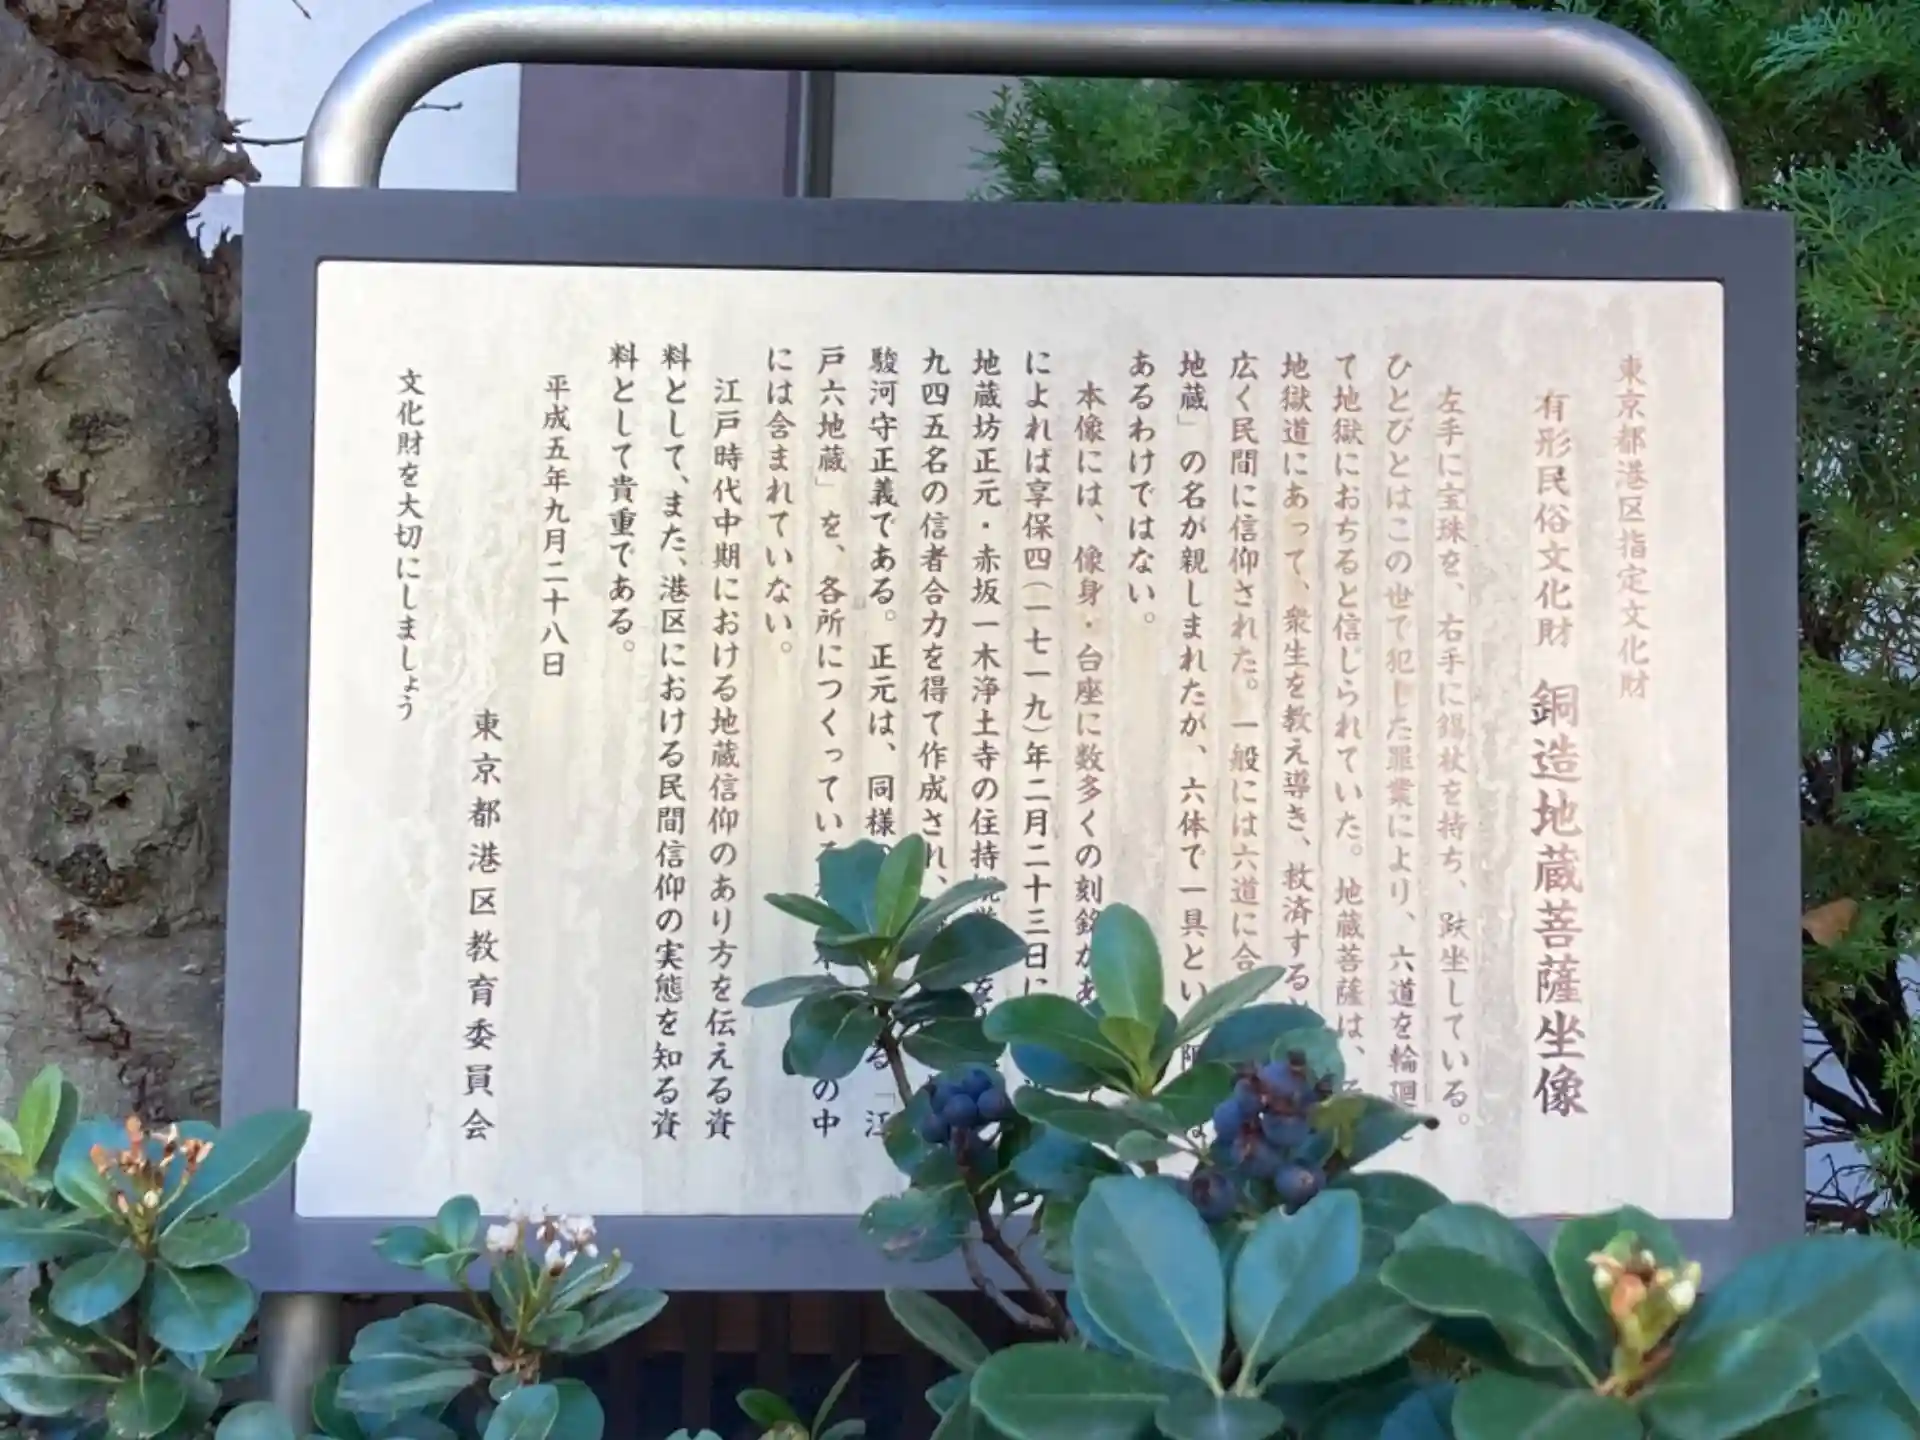 東京都港区指定文化財
有形民俗文化財 銅造地蔵菩薩坐像
左手に宝珠を、右手に錫杖を持ち、趺坐している。
ひとびとはこの世で犯した罪業により、六道を輪廻
て地獄におちると信じられていた。地蔵菩薩は、
地獄道にあって、衆生を教え導き、救済する
広く民間に信仰された。一般には六道に合
地蔵」の名が親しまれたが、六体で一具とい
あるわけではない。
本像には、像身・台座に数多くの刻銘があ
によれば享保四(一七一九)年二月二十三日に
地蔵坊正元・赤坂一木浄土寺の住持
九四五名の信者合力を得て作成され、
駿河守正義である。正元は、同様 る「江
戸六地蔵」を、各所につくっている の中
には含まれていない。
江戸時代中期における地蔵信仰のあり方を伝える資
料として、また、港区における民間信仰の実態を知る資
料として貴重である。
平成五年九月二十八日
東京都港区教育委員会
文化財を大切にしましょう